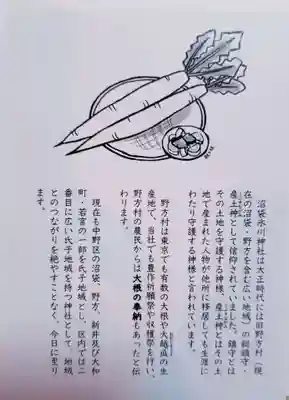 沼袋氷川神社は大正時代には旧野方村(現
在の沼袋・野方を含む広い地域)の鎮守・
産土神として信仰されていました。鎮守とは
その土地を守護する神様、産土神とはその土
地で産まれた人物が他所に移居しても生涯に
わたり守護する神様と言われています。
野方村は東京でも有数の大根や大麦の
産地で、当社でも豊作祈願祭や収穫祭を行い、
野方村の農民からは大根の奉納もあったと伝
わります。
現在も中野区の沼袋、野方、新井及び大和
町・若宮の一部を氏子地域とし、区内では二
番目に広い氏子地域を持つ神社として、地域
とのつながりを絶やすことなく、今日に至り
ます。